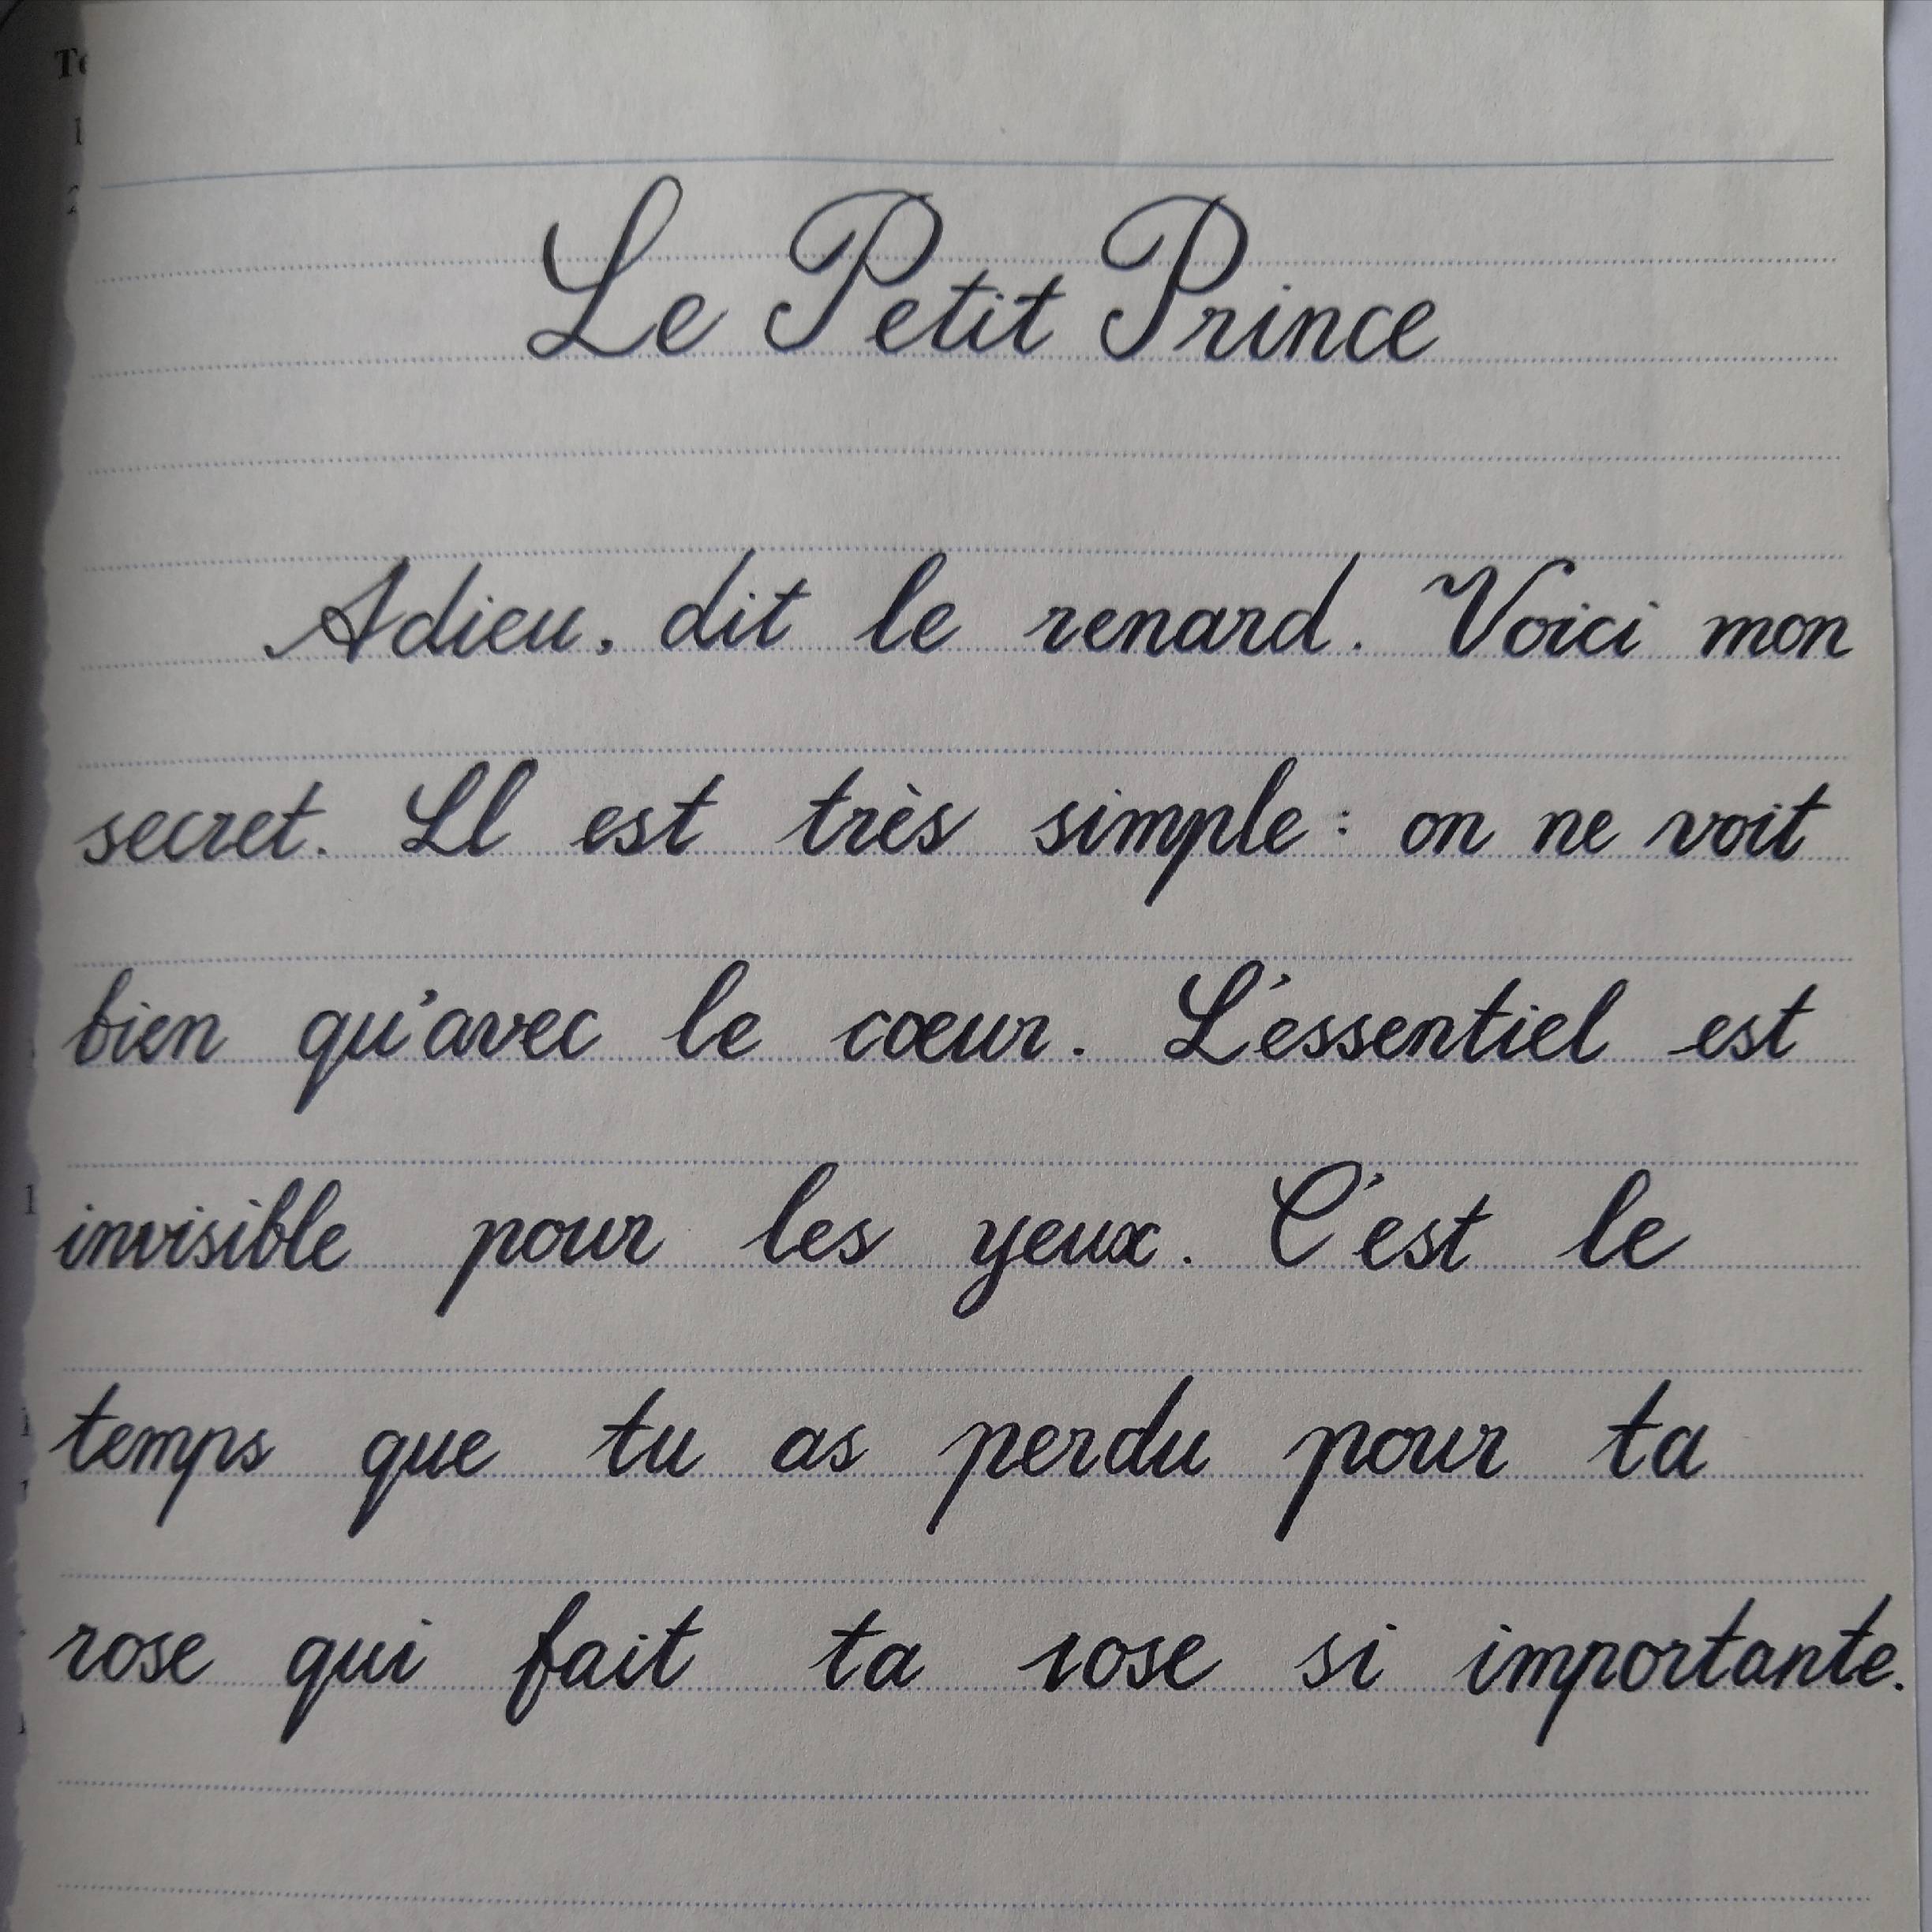 Le Petit Prince
Adieu, dit le renard. Voici mon
secret. Il est très simple : on ne voit
bien qu'avec le cœur. L'essentiel est
invisible pour les yeux. C'est le
temps que tu as perdu pour ta
rose qui fait ta rose si importante.